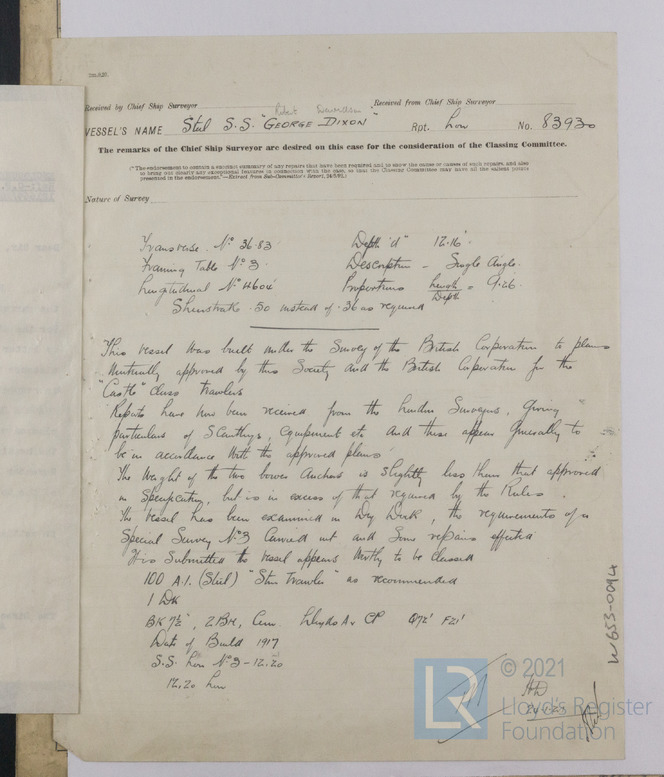 Received by Chief Ship Surveyor Received from Chief Ship Surveyor
Robert
VESSEL'S NAME Steel S.S. "GEORGE DIXON" Rpt. Lon No. 83930
The remarks of the Chief Ship Surveyor are desired on this case for the consideration of the Classing Committee.
(*The endorsement to contain a succinct summary of any repairs that have been required and to show the cause or causes of such repairs, and also
to bring out clearly any exceptional features in connection with the case, so that the Classing Committee may have all the salient points
presented in the endorsement."
Nature of Survey
Transverse No 36.83 Depth "d" 12.16'
Framing Table No 3 Description - Single Angle.
Longitudinal No 4604 Proportions Length/Depth = 9.26.
Sheerstrake .50 instead of .36 as required
This vessel was built under the Survey of the British Corporation to plans
mutually approved by this Society and the British Corporation for the
"Castle" class trawlers
Reports have now been received from the London Surveyors, giving
particulars of scantlings, equipment etc and these appear generally to
be in accordance with the approved plans.
The weight of the two bower anchors is slightly less than that approved
in Specification, but is in excess of that required by the Rules.
The vessel has been examined in Dry Dock, the requirements of a
Special Survey No 3 carried out and some repairs effected
It is submitted the vessel appears worthy to be classed
100 A.1. (Steel) "Steam Trawler" as recommended
1 Dk
BK 7½", 2BH, Cem Lloyds A & CP Q72' F21'
Date of Build 1917
S.S. Lon No 3 - 12.20
12.20 Lon
W653-0094
© 2021
LR
Lloyd's Register
Foundation